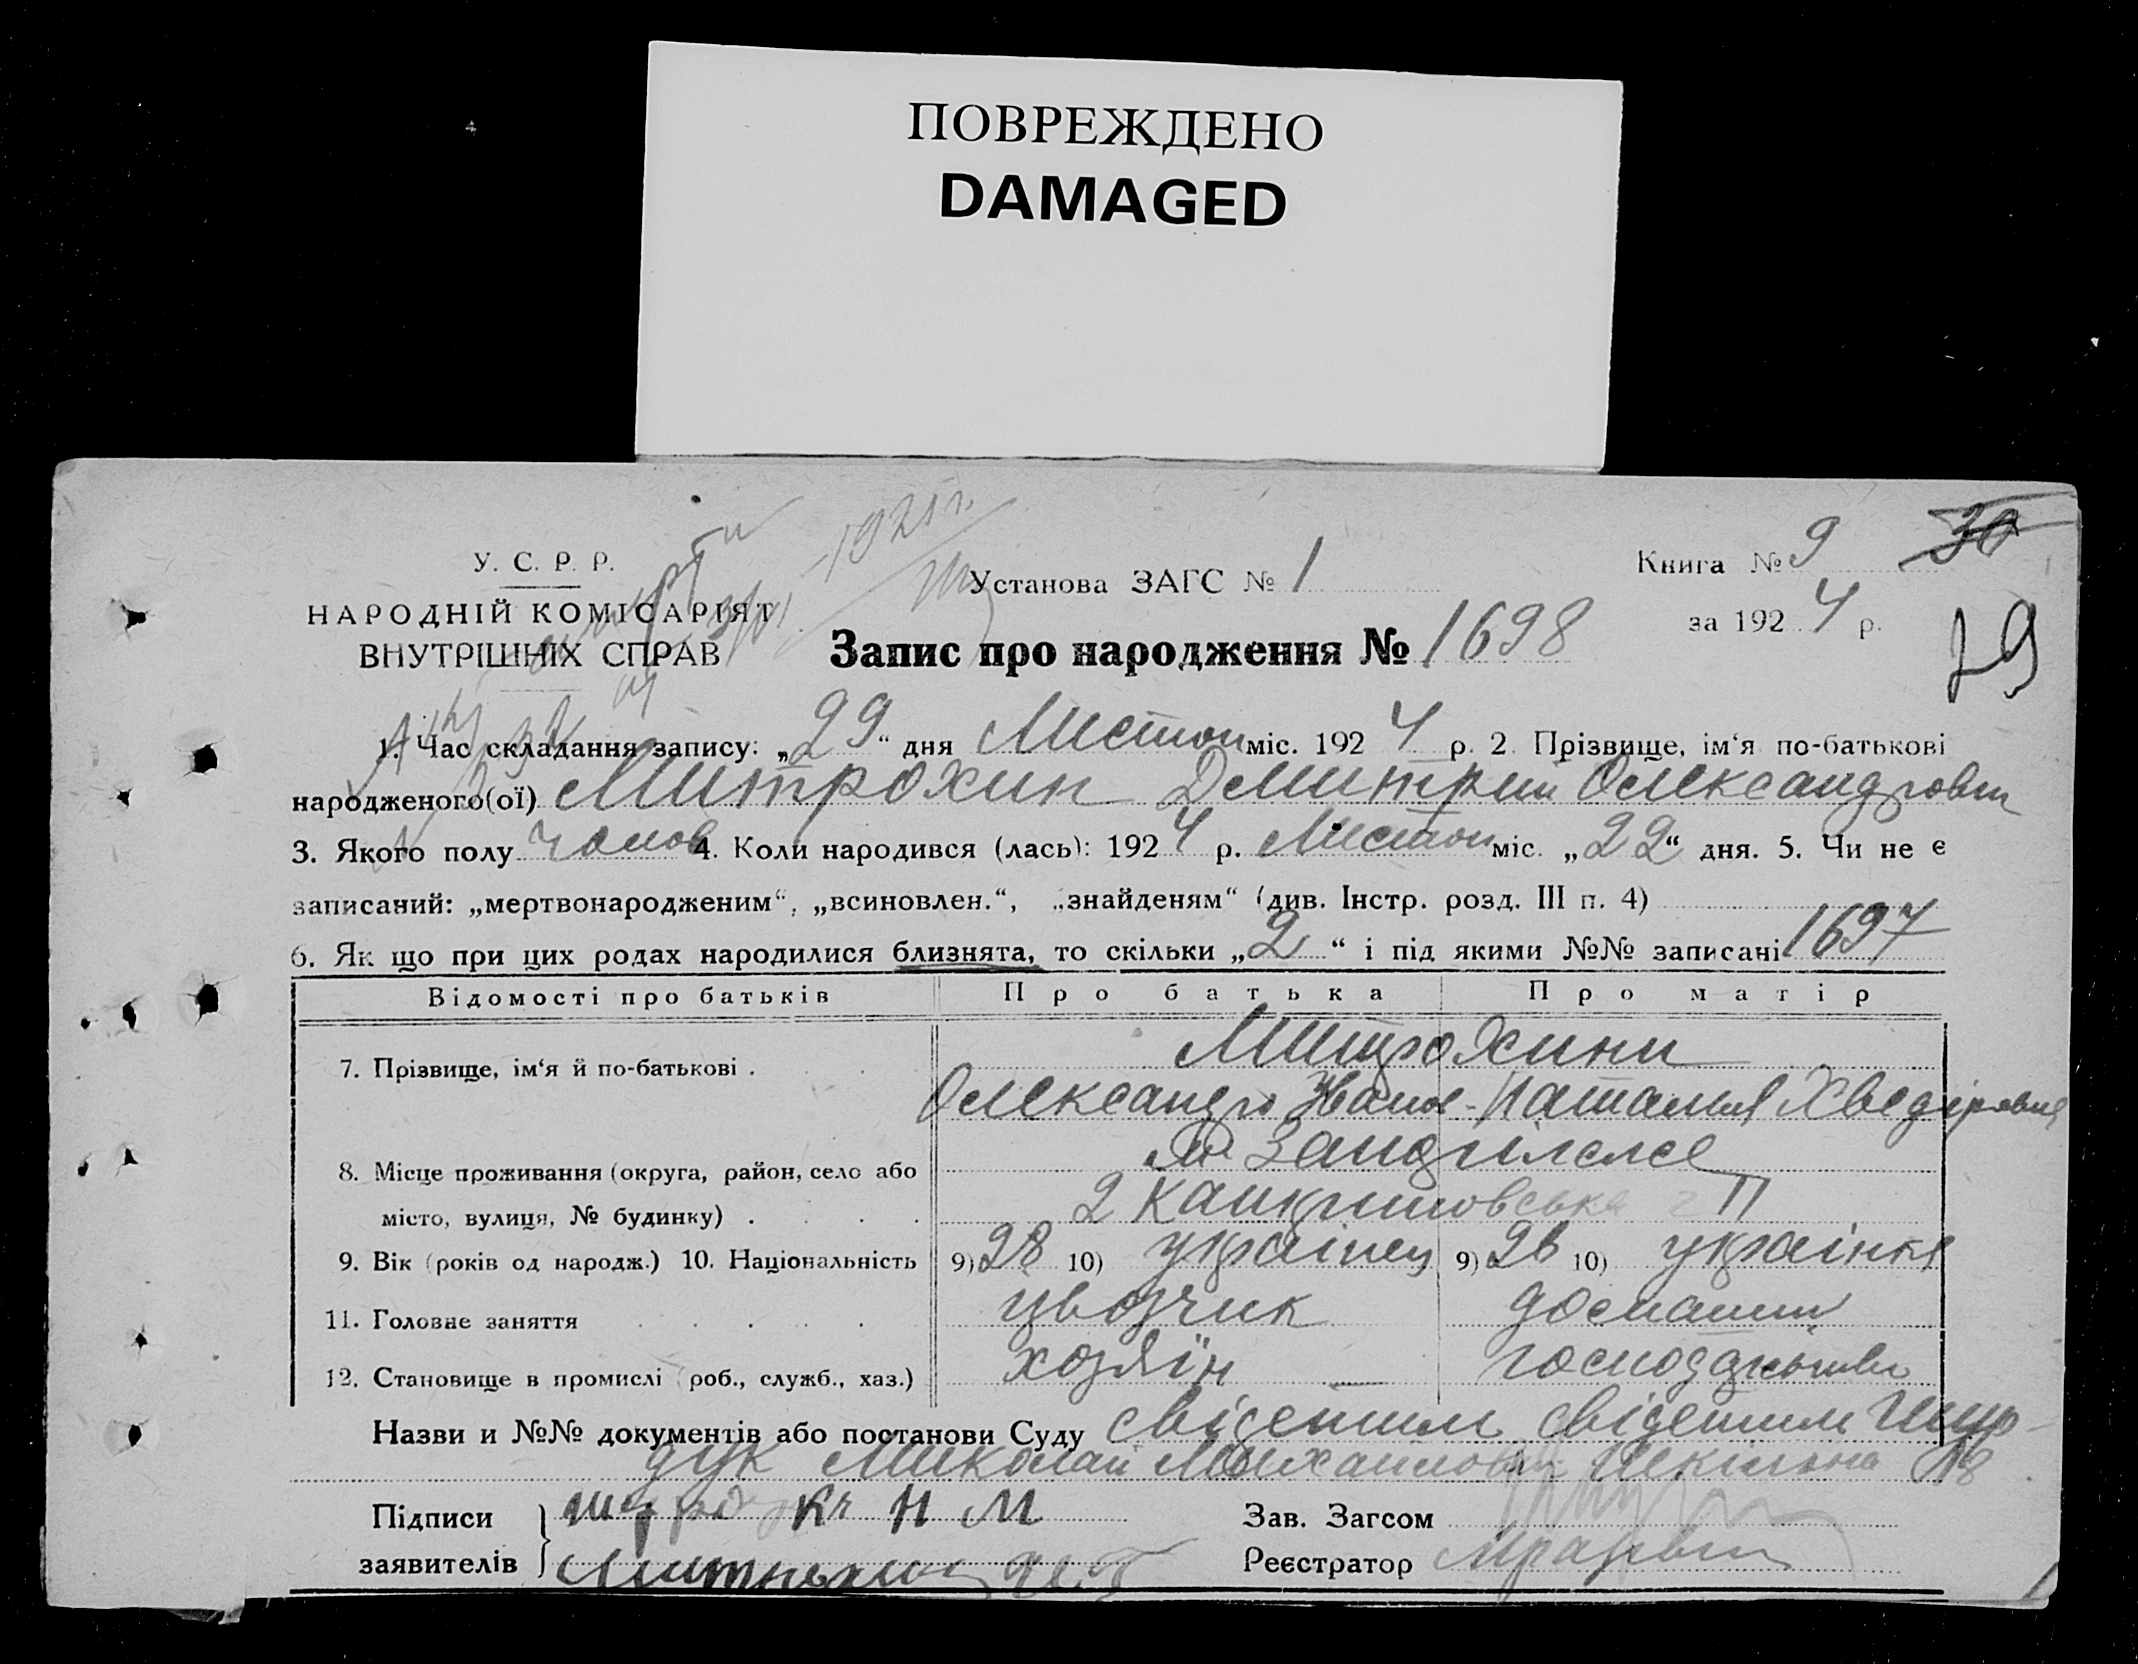 ПОВРЕЖДЕНО
DAMAGED
У. С. Р. Р.
НАРОДНІЙ КОМІСАРІЯТ
ВНУТРІШНІХ СПРАВ
Установа ЗАГС № 1
Книга № 9 30
за 1924 р.
79
Запис про народження № 1698
1. Час складання запису: „29“ дня Листоп міс. 1924 р. 2. Прізвище, ім‘я по-батькові
народженого(ої) Митрохин Дмитрий Олександрович
3. Якого полу чолов 4. Коли народився (лась): 1924 р. Листоп міс. „22“ дня. 5. Чи не є
записаний: „мертвонародженим“, „всиновлен.“, „знайденям“ (див. Інстр. розд. III п. 4)
6. Як що при цих родах народилися близнята, то скільки „2“ і під якими №№ записані 1697
Відомості про батьків Про батька Про матір
7. Прізвище, ім‘я й по-батькові . Митрохини
Олександр Іванов- Наталія Хведірівна
8. Місце проживання (округа, район, село або
місто, вулиця, № будинку) . 2 11
9. Вік (років од народж.) 10. Національність 9) 28 10) українець 9) 26 10) українка
11. Головне заняття домашн
12. Становище в промислі (роб., служб., хаз.) хозяїн господарство
Назви и №№ документів або постанови Суду
Миколай Михайлович 18
Підписи
заявителів
Зав. Загсом
Реєстратор